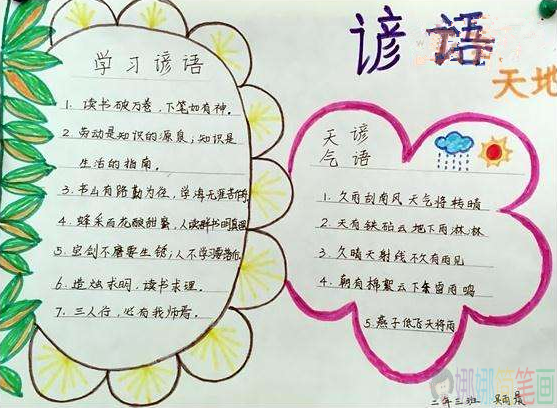 谚语
天地
学习谚语
1. 读书破万卷，下笔如有神。
2. 劳动是知识的源泉；知识是
生活的指南。
3. 书山有路勤为径，学海无涯苦
4. 蜂采百花酿甜蜜，人读群书明真理
5. 宝剑不磨要生锈；人不学习要落伍
6. 造烛求明，读书求理。
7. 三人行，必有我师焉。
天气谚语
1. 久雨刮南风 天气将转晴
2. 天有铁砧云 地下雨淋淋
3. 久晴天射线 不久有雨见
4. 朝有棉絮云 下午雷雨鸣
5. 燕子低飞天将雨
三年三班
娜娜简笔画